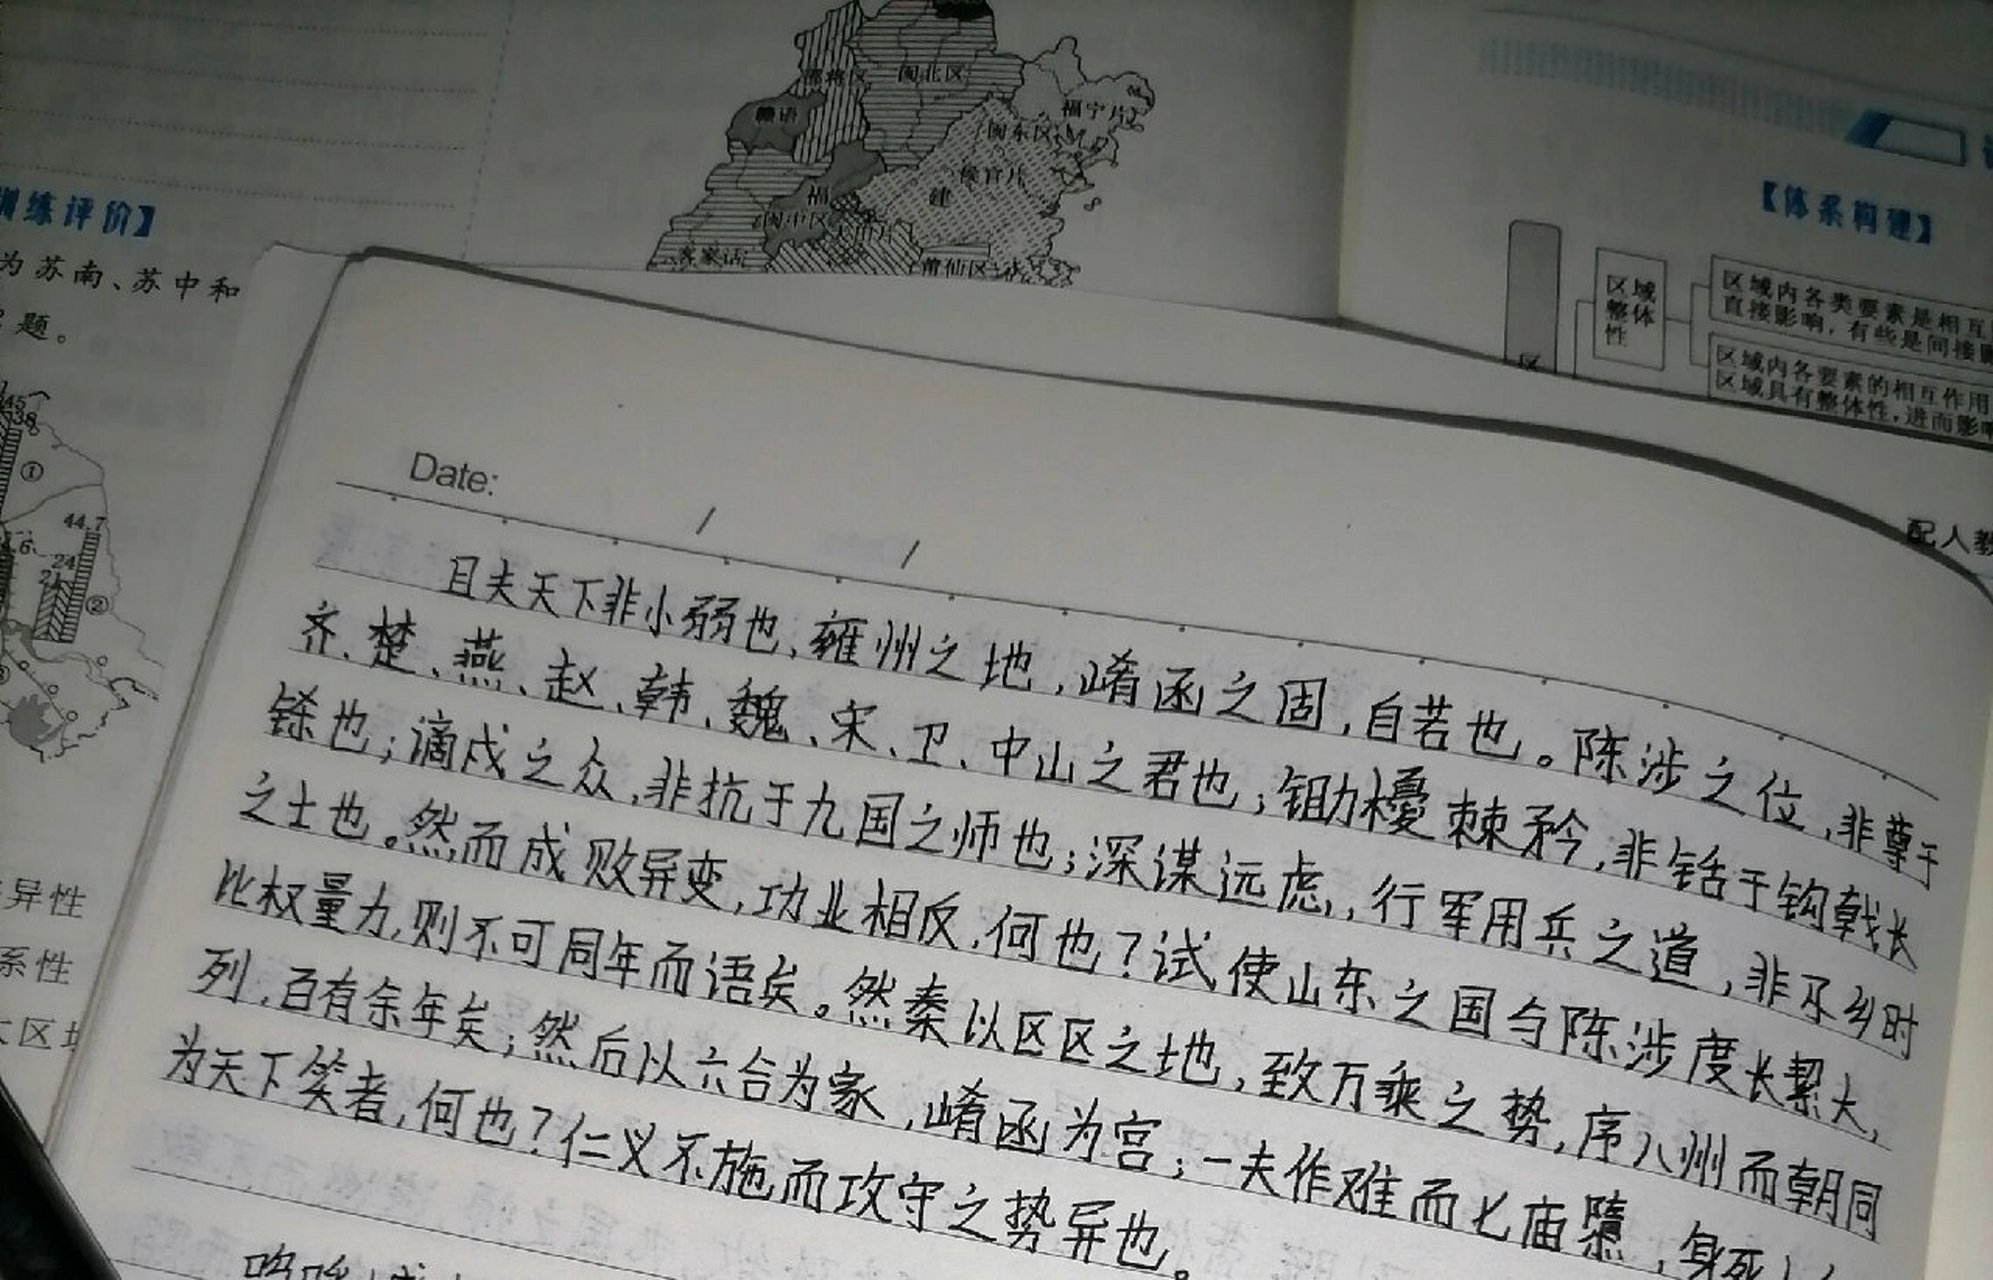 训练评价】
为苏南、苏中和
题。
①
44.7
24
21
②
异性
系性
闽北区
赣语
福宁片
闽东区
侯官片
福
建
闽中区
客家话
莆仙区
【体系构建】
区域
整体
性
区域内各类要素是相互
直接影响，有些是间接
区域内各要素的相互作用
区域具有整体性，进而影响
区
配人教
Date: / /
且夫天下非小弱也，雍州之地，崤函之固，自若也。陈涉之位，非尊于
齐、楚、燕、赵、韩、魏、宋、卫、中山之君也；锄櫌棘矜，非铦于钩戟长
铩也；谪戍之众，非抗于九国之师也；深谋远虑，行军用兵之道，非及乡时
之士也。然而成败异变，功业相反，何也？试使山东之国与陈涉度长絜大，
比权量力，则不可同年而语矣。然秦以区区之地，致万乘之势，序八州而朝同
列，百有余年矣；然后以六合为家，崤函为宫；一夫作难而七庙隳，身死
为天下笑者，何也？仁义不施而攻守之势异也。